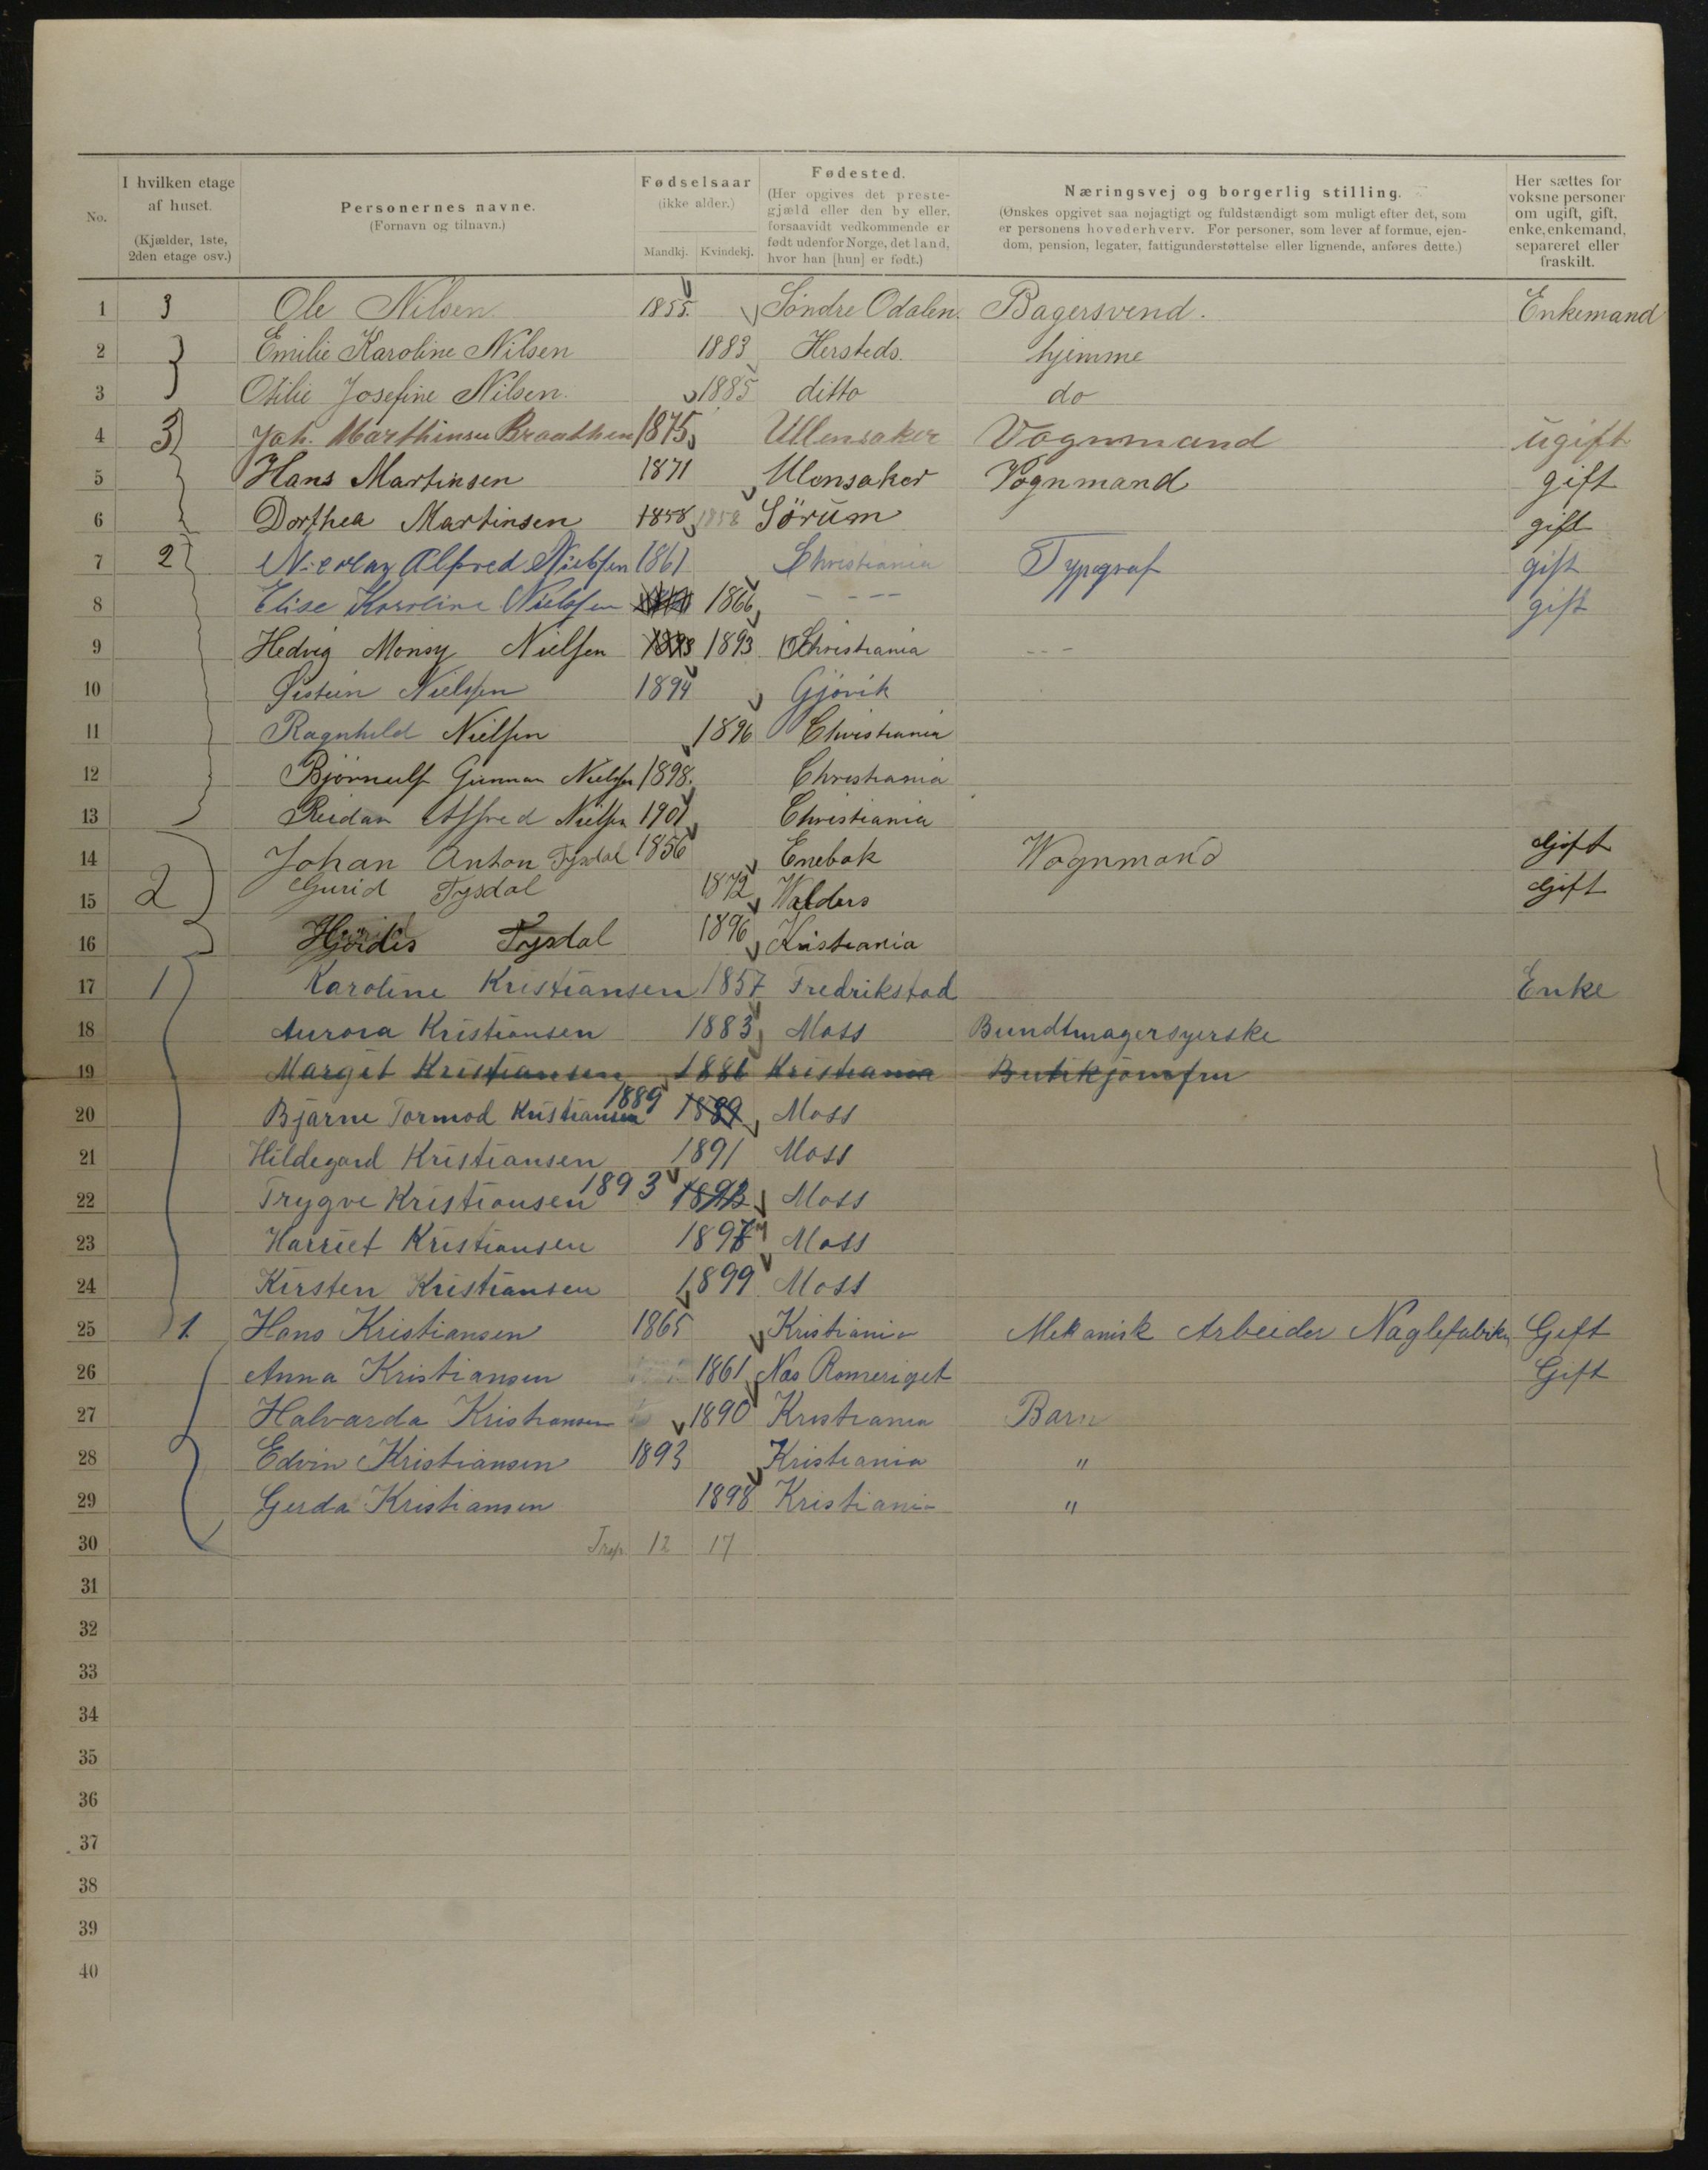 No.
I hvilken etage af huset.
(Kjælder, 1ste, 2den etage osv.)
Personernes navne.
(Fornavn og tilnavn.)
Fødselsaar
(ikke alder.)
Mandkj. Kvindekj.
Fødested.
(Her opgives det prestegjæld eller den by eller, forsaavidt vedkommende er født udenfor Norge, det land, hvor han [hun] er født.)
Næringsvej og borgerlig stilling.
(Ønskes opgivet saa nøjagtigt og fuldstændigt som muligt efter det, som er personens hovederhverv. For personer, som lever af formue, ejendom, pension, legater, fattigunderstøttelse eller lignende, anføres dette.)
Her sættes for voksne personer om ugift, gift, enke, enkemand, separeret eller fraskilt.
1 3 Ole Nilsen 1855. Söndre Odalen. Bagersvend. Enkemand
2 Emilie Karoline Nilsen 1883 Hersteds. hjemme
3 Otilie Josefine Nilsen. 1885 ditto do
4 3 Joh. Marthinsen Braathen 1875 Ullensaker Vognmand ugift
5 Hans Martinsen 1871 Ulensaker Vognmand gift
6 Dorthea Martinsen 1858 1858 Sörum gift
7 2 Nicolay Alfred Nielsen 1861 Christiania Typograf gift
8 Elise Karoline Nielsen 1866 - - - - gift
9 Hedvig Monsy Nielsen 1893 1893 Christiania - - -
10 Øistein Nielsen 1894 Gjövik
11 Ragnhild Nielsen 1896 Christiania
12 Bjørnulf Gunnar Nielsen 1898. Christiania
13 Reidar Alfred Nielsen 1901 Christiania
14 Johan Anton Tysdal 1856 Enebak Wognmand Gift
15 2 Gurid Tysdal 1872 Walders Gift
16 Hjördis Tysdal 1896 Kristiania
17 1 Karoline Kristiansen 1857 Fredrikstad Enke
18 Aurora Kristiansen 1883 Moss Bundtmagersyerske
19 Margit Kristiansen 1886 Kristiania Butikjomfru
20 Bjarne Tormod Kristiansen 1889 1889 Moss
21 Hildegard Kristiansen 1891 Moss
22 Trygve Kristiansen 1893 1893 Moss
23 Harriet Kristiansen 1897 Moss
24 Kirsten Kristiansen 1899 Moss
25 1. Hans Kristiansen 1865 Kristiania Mekanisk Arbeider Naglefabrik Gift
26 Anna Kristiansen 1861 Nes Romeriget Gift
27 Halvarda Kristiansen 1890 Kristiania Barn
28 Edvin Kristiansen 1893 Kristiania "
29 Gerda Kristiansen 1898 Kristiania "
30 12 17
31
32
33
34
35
36
37
38
39
40